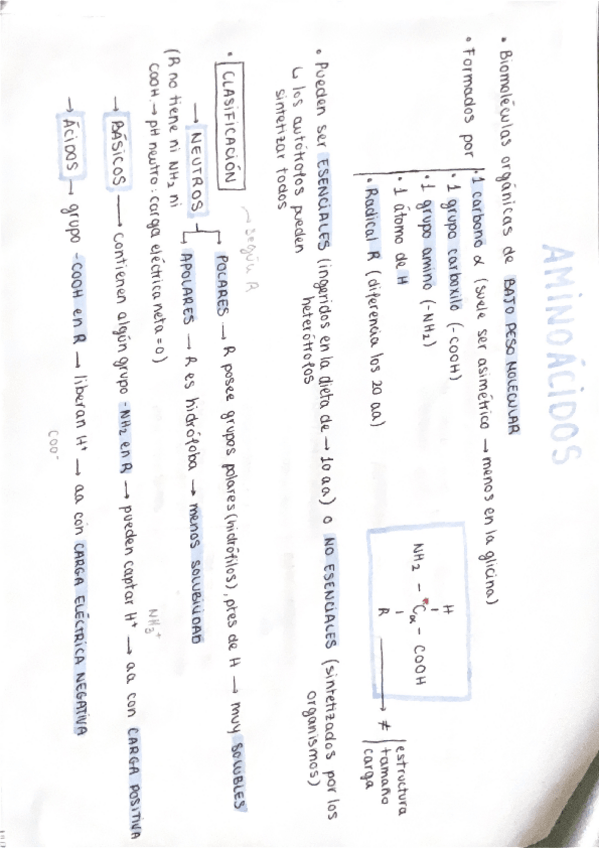 AMINOÁCIDOS
• Biomoléculas orgánicas de BAJO PESO MOLECULAR
• Formados por
• 1 carbono α (suele ser asimétrico → menos en la glicina)
• 1 grupo carboxilo (-COOH)
• 1 grupo amino (-NH₂)
• 1 átomo de H
• Radical R (diferencia los 20 aa)
H
NH₂ - *Cα - COOH
R
→ ≠
estructura
tamaño
carga
• Pueden ser ESENCIALES (ingeridos en la dieta de → 10 aa) o NO ESENCIALES (sintetizados por los
heterótrofos
organismos)
↳ los autótrofos pueden
sintetizar todos
• CLASIFICACIÓN
→ según R
→ NEUTROS
POLARES → R posee grupos polares (hidrófilos), ptes de H → muy SOLUBLES
APOLARES → R es hidrófoba → menos SOLUBILIDAD
(R no tiene ni NH₂ ni
COOH → pH neutro: carga eléctrica neta = 0)
NH₃⁺
→ BÁSICOS → contienen algún grupo -NH₂ en R → pueden captar H⁺ → aa con CARGA POSITIVA
→ ÁCIDOS → grupo -COOH en R → liberan H⁺ → aa con CARGA ELÉCTRICA NEGATIVA
COO⁻